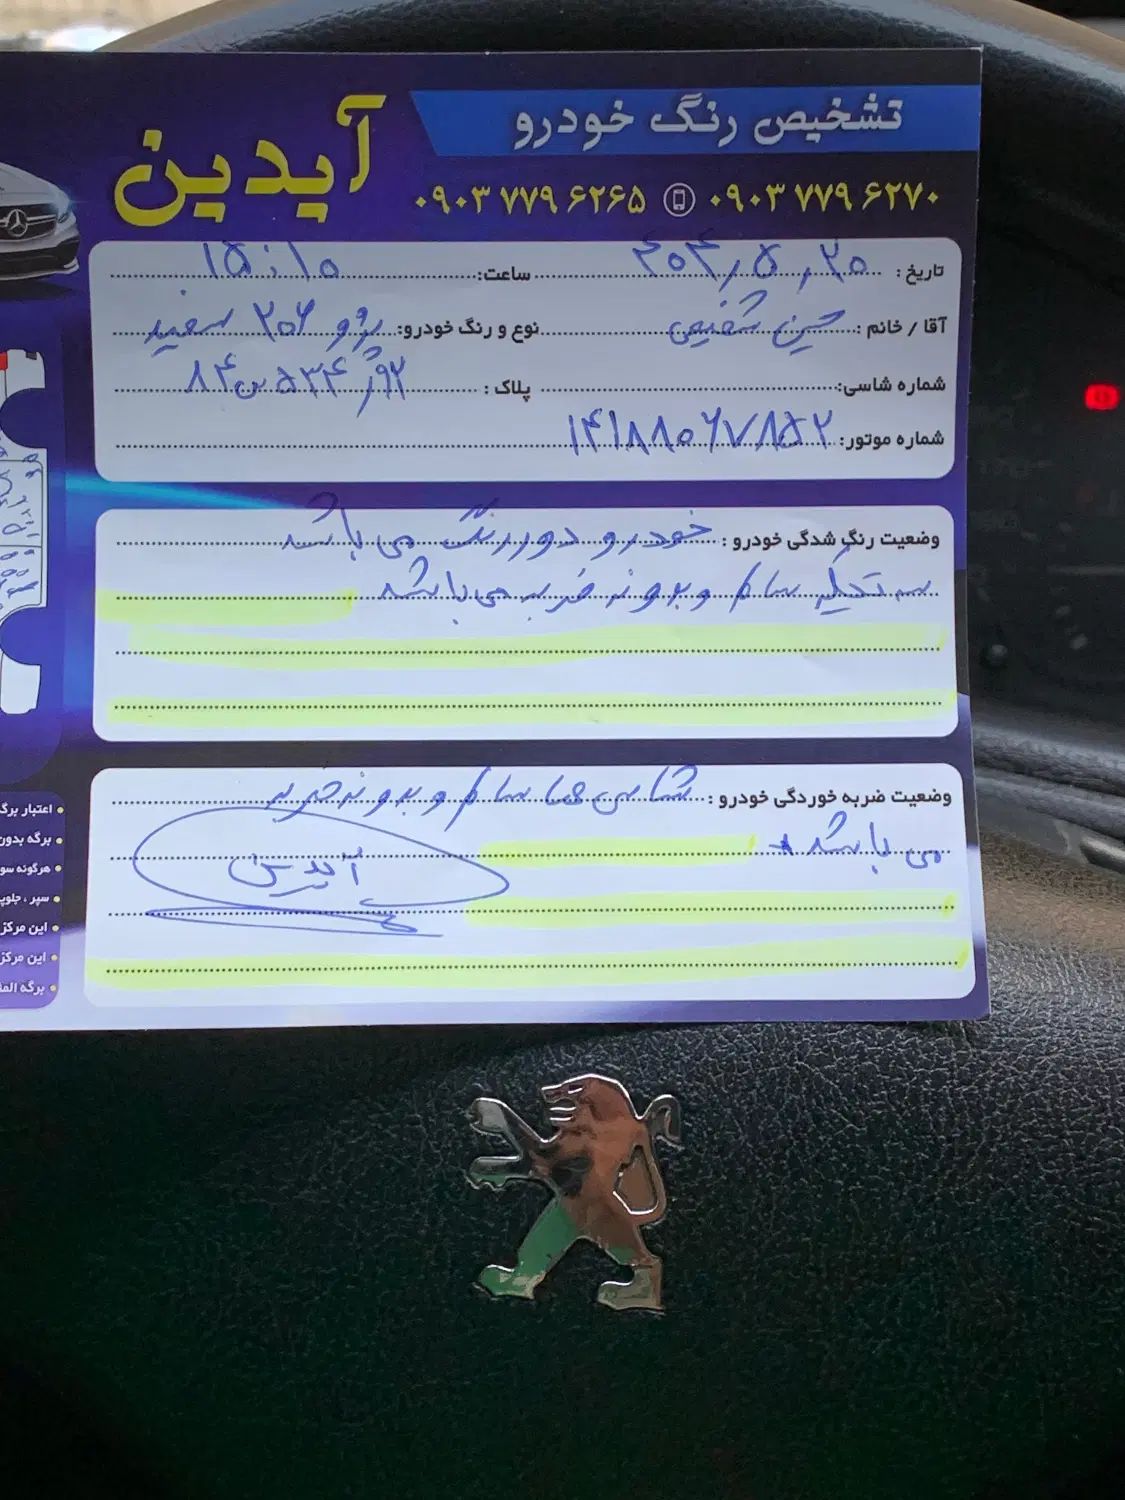 تشخیص رنگ خودرو
آیدین
۰۹۰۳ ۷۷۹ ۶۲۷۰ ۰۹۰۳ ۷۷۹ ۶۲۶۵
تاریخ: ۴۰۴/۵/۲۰ ساعت: ۱۵:۱۰
آقا / خانم: حسین شفیعی نوع و رنگ خودرو: پژو ۲۰۶ سفید
شماره شاسی: پلاک: ۵۳۴ س ۸۴
شماره موتور: ۱۴۱۸۸۰۶۷۸۵۲
وضعیت رنگ شدگی خودرو: خودرو دور رنگ می باشد
ستون سالم و بدونه ضربه می باشد
وضعیت ضربه خوردگی خودرو: شاسی ها سالم و بدونه ضربه
می باشد
آیدین
اعتبار برگه
برگه بدون
هرگونه سو
سپر ، جلوپ
این مرکز
این مرکز
برگه المث